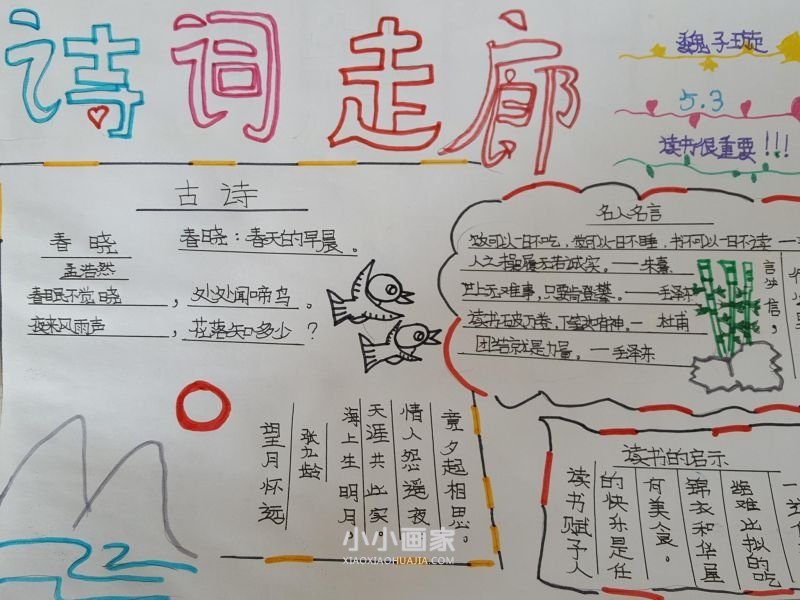 诗词走廊
魏子璇
5.3
读书很重要!!!
古诗
春晓
孟浩然
春眠不觉晓,处处闻啼鸟。
夜来风雨声,花落知多少?
春晓:春天的早晨。
望月怀远
张九龄
海上生明月
天涯共此实。
情人怨遥夜
竟夕起相思。
名人名言
饭可以一日不吃,觉可以一日不睡,书不可以一日不读
人之操履无若诚实。——朱熹
世上无难事,只要肯登攀。——毛泽东
读书破万卷,下笔如有神。——杜甫
团结就是力量。——毛泽东
言必信,
读书的启示
读书赋予人
的快乐是任
何美食。
锦衣和华屋
都难比拟的吃
小小画家
XIAOXIAOHUAJIA.COM